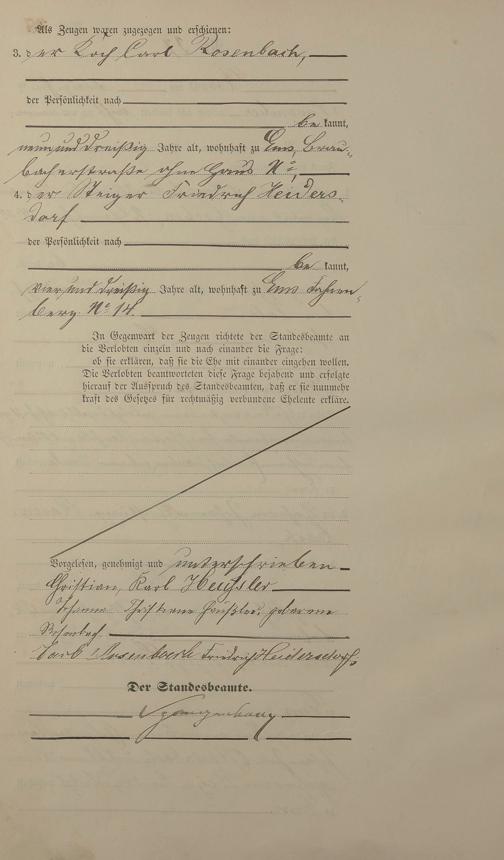 Als Zeugen waren zugezogen und erschienen:
3. der Koch Carl Rosenbach,
der Persönlichkeit nach
be kannt,
neun und dreißig Jahre alt, wohnhaft zu Ems, Brau-
bacherstraße ohne Haus No,
4. der Steiger Friedrich Heiders-
dorf
der Persönlichkeit nach
be kannt,
vier und dreißig Jahre alt, wohnhaft zu Ems
berg No 14.
In Gegenwart der Zeugen richtete der Standesbeamte an
die Verlobten einzeln und nach einander die Frage:
ob sie erklären, daß sie die Ehe mit einander eingehen wollen.
Die Verlobten beantworteten diese Frage bejahend und erfolgte
hierauf der Ausspruch des Standesbeamten, daß er sie nunmehr
kraft des Gesetzes für rechtmäßig verbundene Eheleute erkläre.
Vorgelesen, genehmigt und unterschrieben
Christian, Karl Heußler
Johanna Christiane Heußler, geborene
Rosenbach.
Carl Rosenbach Friedrich Heidersdorf,
Der Standesbeamte.